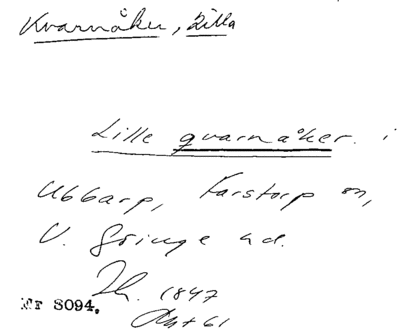 Kvarnåker, Lilla
Lille qvarnåker. i
Ubbarp, Farstorp sn,
V. Göinge hd.
Sh. 1847
Nr 8094. Akt 61